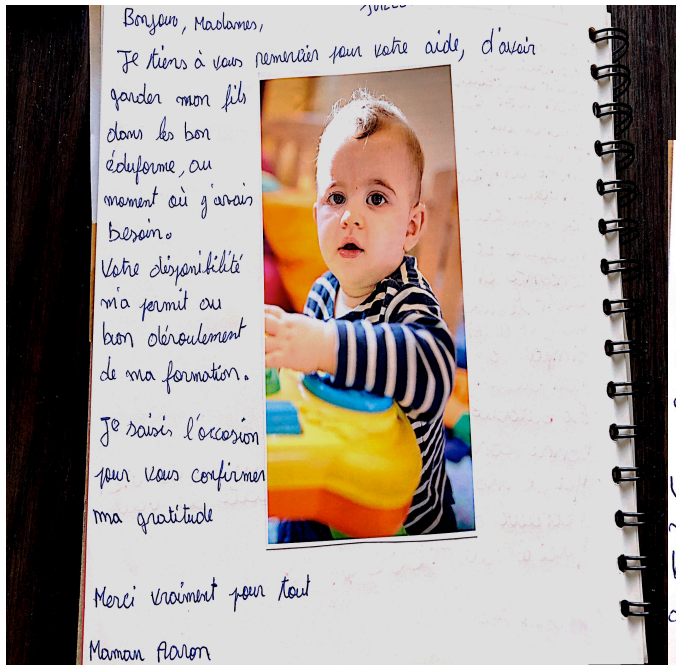 Bonjour, Madames,
Je tiens à vous remercier pour votre aide, d'avoir
garder mon fils
dans les bon
éduforme, au
moment où j'avais
besoin.
Votre disponibilité
m'a permit au
bon déroulement
de ma formation.
Je saisis l'occasion
pour vous confirmer
ma gratitude
Merci vraiment pour tout
Maman Aaron